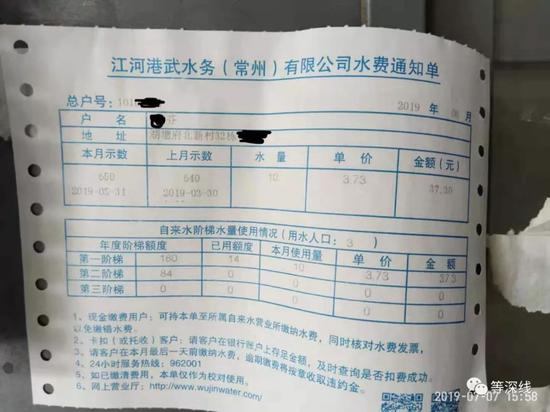 江河港武水务（常州）有限公司水费通知单
总户号：101
2019 年 月
户 名 芬
地 址 湖塘府北新村32栋
本月示数 上月示数 水 量 单 价 金额（元）
650 640 10 3.73 37.30
2019-05-31 2019-03-30
自来水阶梯水量使用情况（用水人口：3 ）
年度阶梯额度 已用额度 本月使用量 单 价 金 额
第一阶梯 180 14 10 3.73 373
第二阶梯 84 0 0 0
第三阶梯 0 0 0
1、现金缴费用户：可持本单至所属自来水营业所缴纳水费，同时核对水费发票，
以免缴错水费。
2、卡扣（或托收）客户：请客户在银行账户上存足金额，及时查询是否扣费成功。
3、请客户在本月最后一天前缴纳水费，逾期缴费将按章收取违约金。
4、24小时服务热线：962001
5、如已缴清费用，本单仅作为校对使用。
6、网上营业厅：http://www.wujinwater.com/
等深线
2019-07-07 15:58